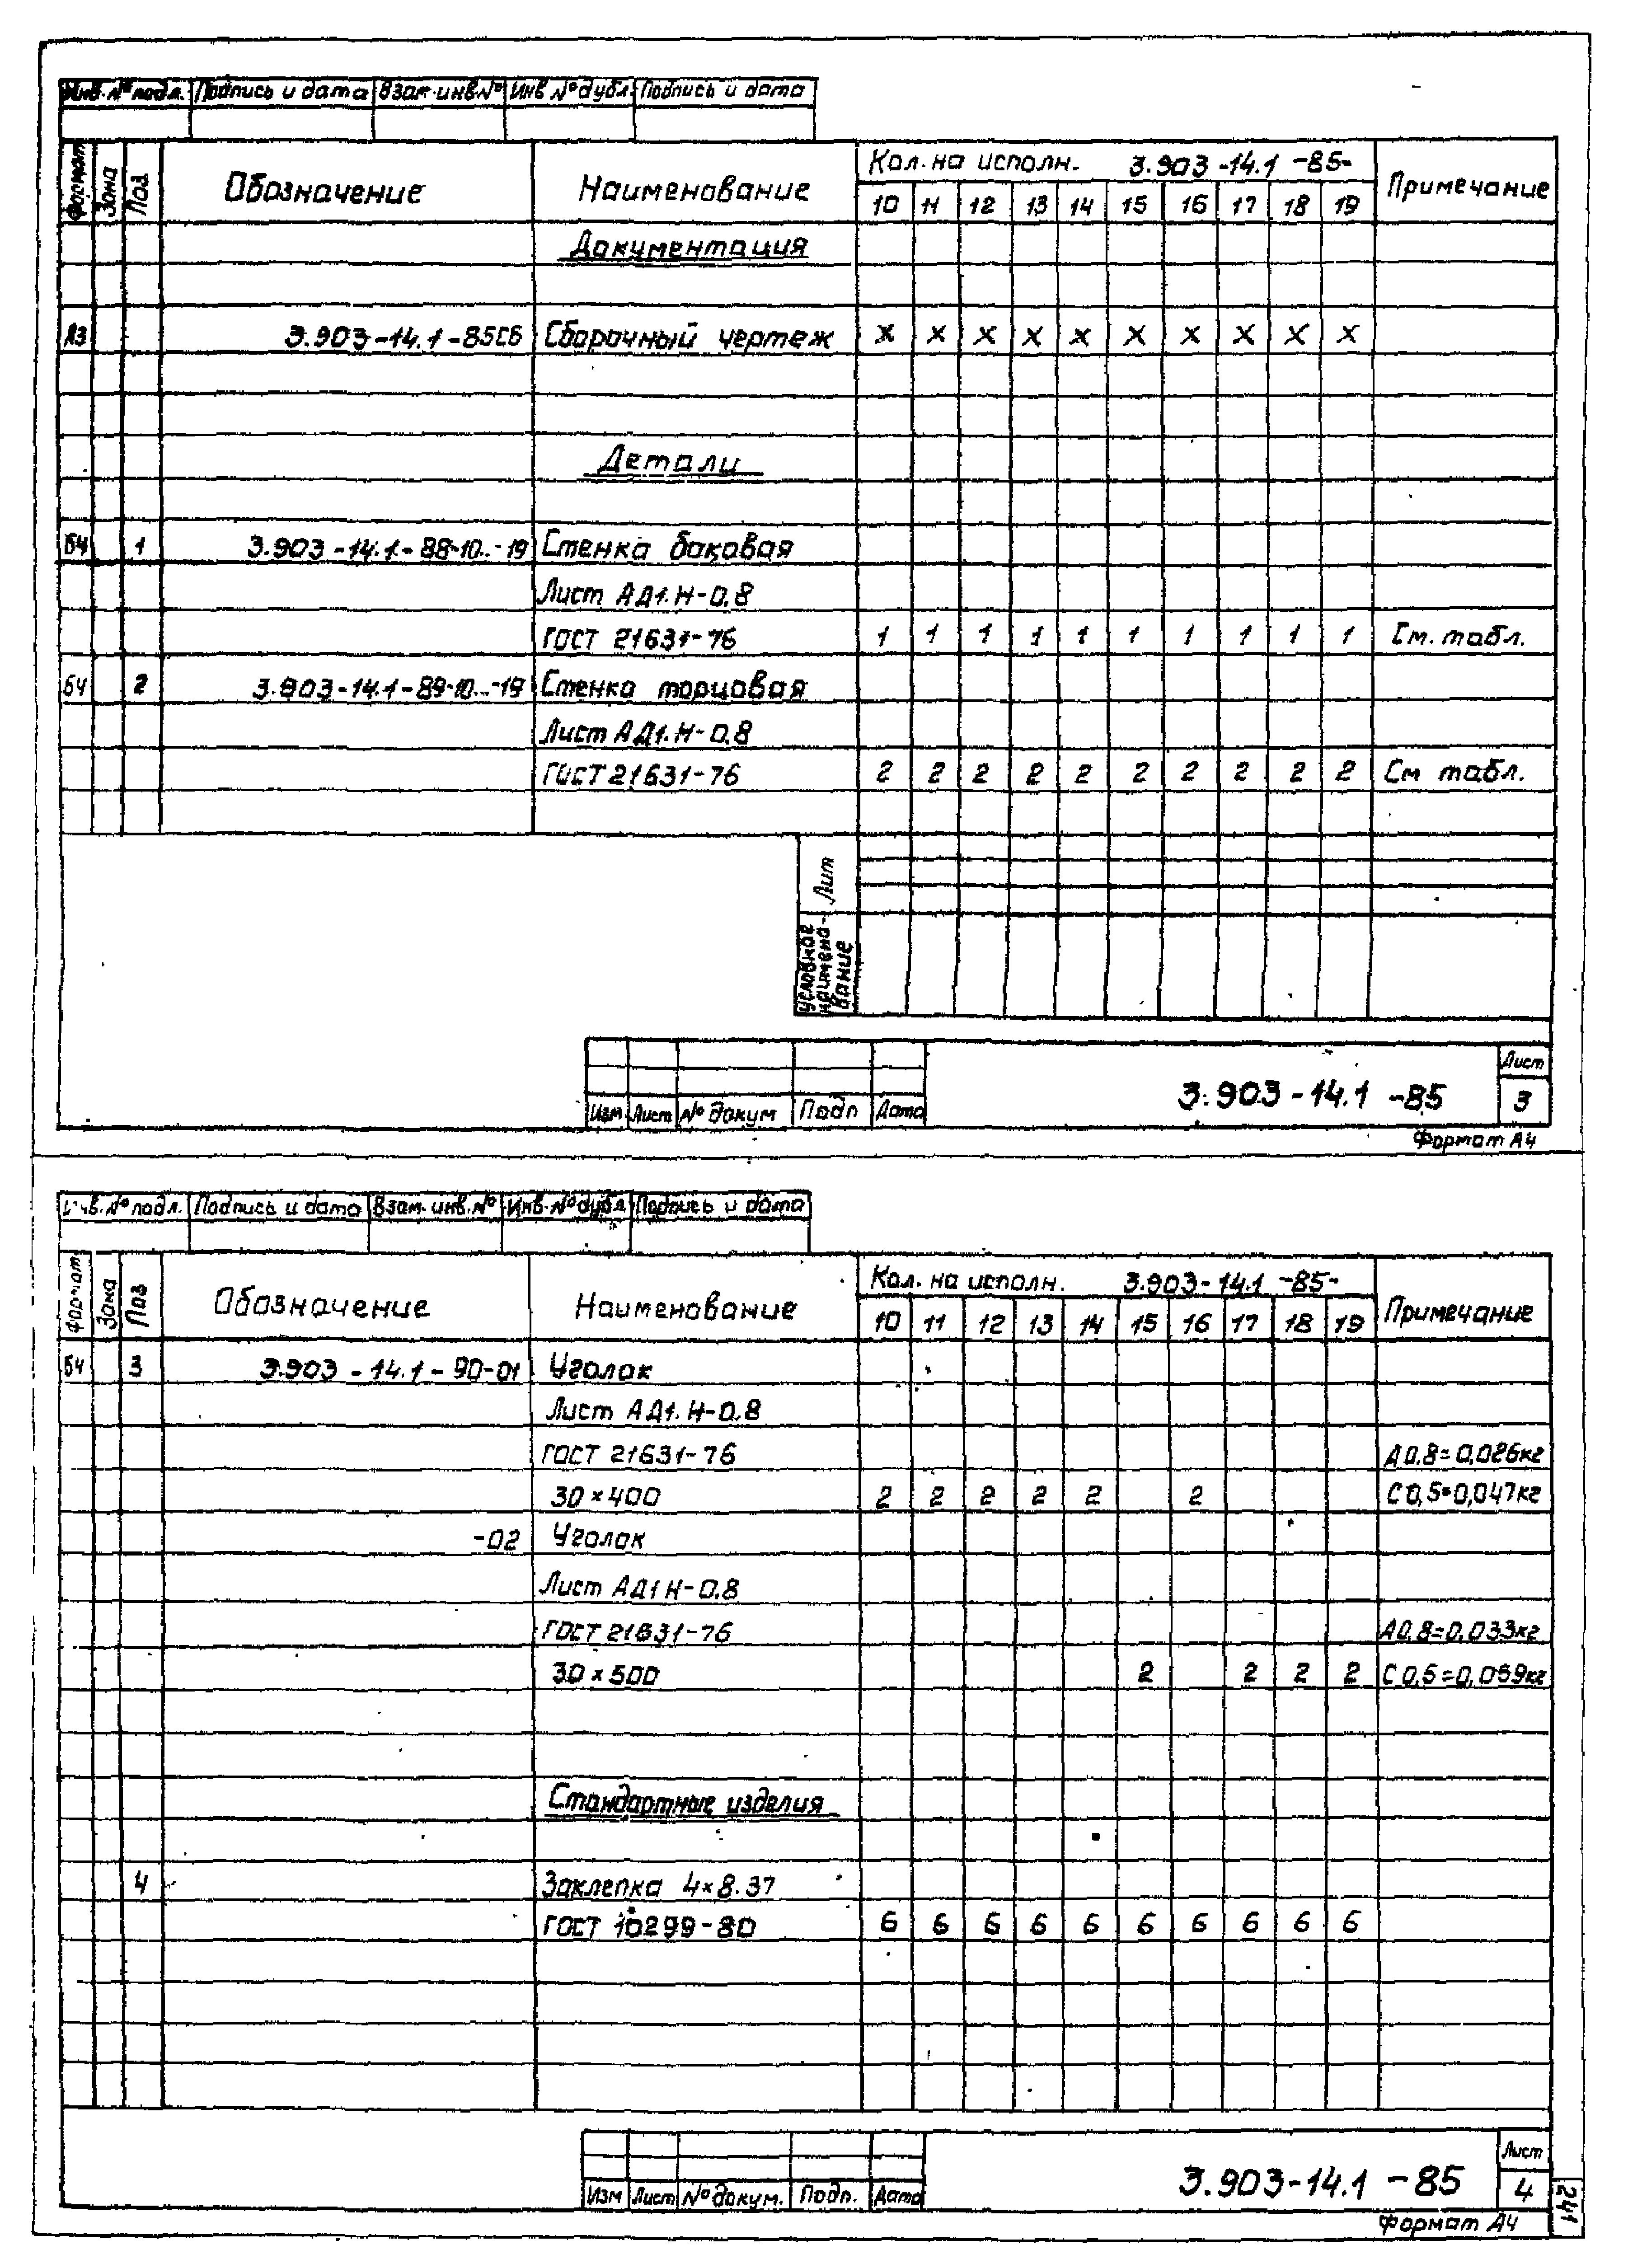 Инв.№подл. Подпись и дата Взам.инв№ Инв№дубл. Подпись и дата
Формат Зона Поз. Обозначение Наименование Кол. на исполн. 3.903-14.1-85- Примечание
10 11 12 13 14 15 16 17 18 19
Документация
А3 3.903-14.1-85СБ Сборочный чертеж х х х х х х х х х х
Детали
БЧ 1 3.903-14.1-88-10..-19 Стенка боковая
Лист АД1.Н-0,8
ГОСТ 21631-76 1 1 1 1 1 1 1 1 1 1 См. табл.
БЧ 2 3.903-14.1-89-10..-19 Стенка торцовая
Лист АД1.Н-0,8
ГОСТ 21631-76 2 2 2 2 2 2 2 2 2 2 См табл.
Лит
Условное наимено-вание
Изм Лист №докум Подп Дата 3.903-14.1-85 Лист 3
Формат А4
Инв.№подл. Подпись и дата Взам.инв.№ Инв.№дубл. Подпись и дата
Формат Зона Поз Обозначение Наименование Кол. на исполн. 3.903-14.1-85- Примечание
10 11 12 13 14 15 16 17 18 19
БЧ 3 3.903-14.1-90-01 Уголок
Лист АД1.Н-0,8
ГОСТ 21631-76 А0,8=0,026кг
30×400 2 2 2 2 2 2 С0,5=0,047кг
-02 Уголок
Лист АД1Н-0,8
ГОСТ 21631-76 А0,8=0,033кг
30×500 2 2 2 2 С0,5=0,059кг
Стандартные изделия
4 Заклепка 4×8.37
ГОСТ 10299-80 6 6 6 6 6 6 6 6 6 6
Изм Лист №докум. Подп. Дата 3.903-14.1-85 Лист 4
Формат А4
241